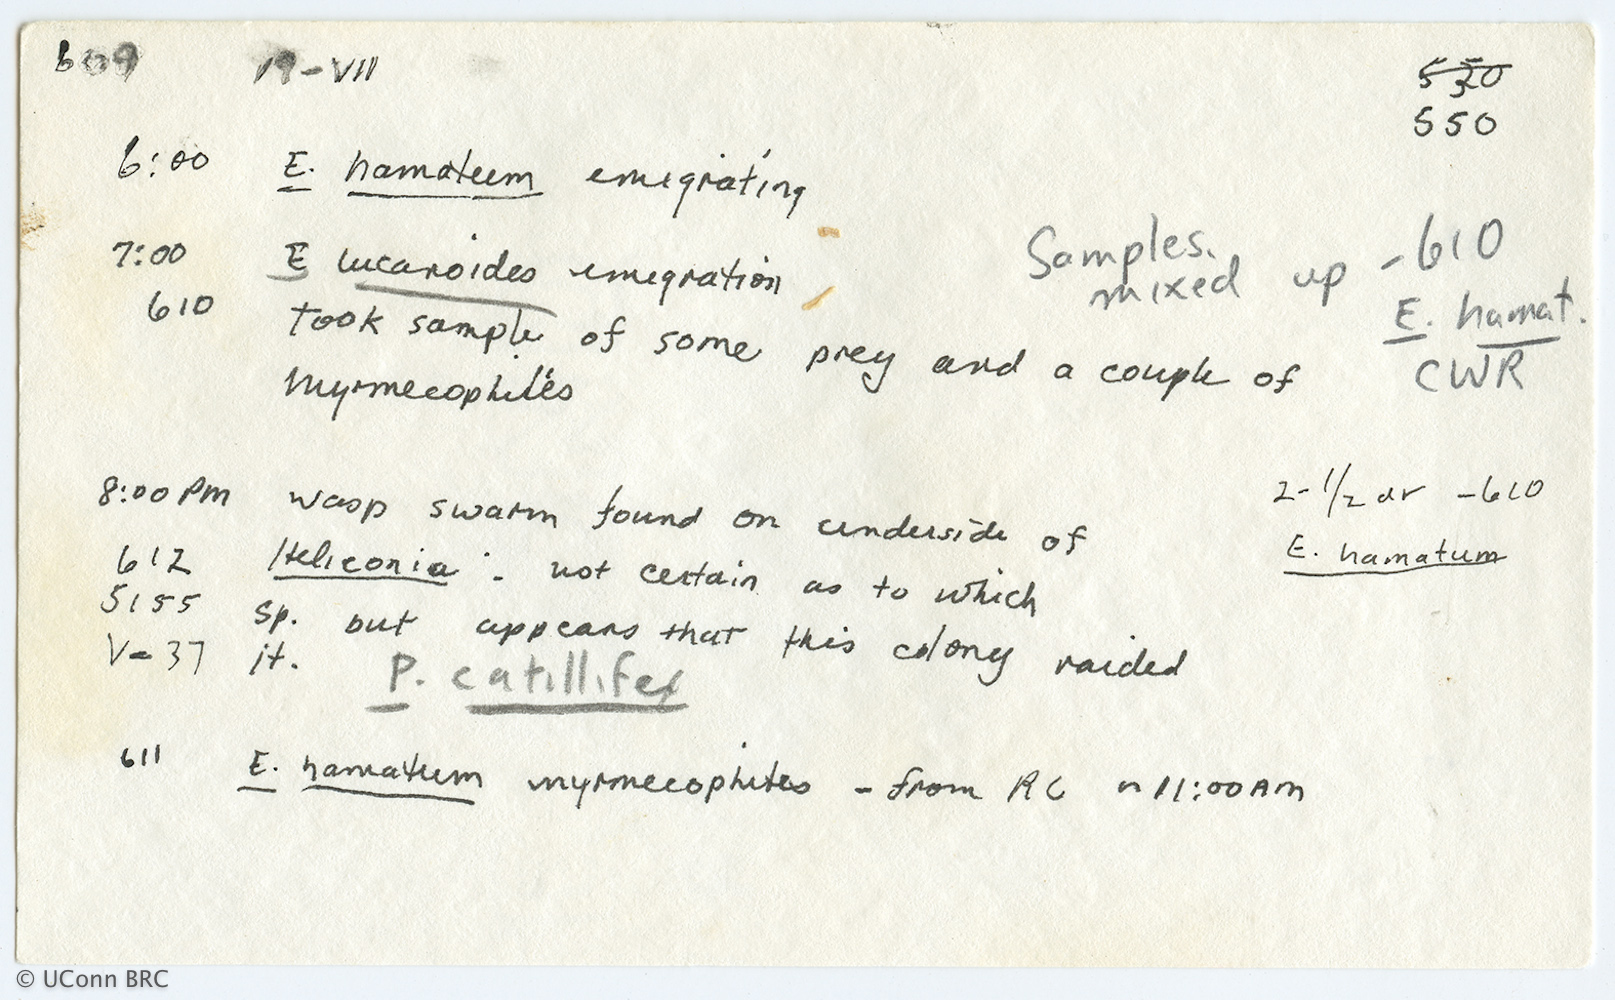 609 19-VII
530
550
6:00 E. hamatum emigrating
7:00 E lucanoides emigration
Samples. mixed up -610
E. hamat.
CWR
610 took sample of some prey and a couple of
myrmecophiles
8:00 PM wasp swarm found on underside of
2-1/2 dr -610
E. hamatum
612 Heliconia. not certain as to which
5155 sp. but appears that this colony raided
V-37 it. P. catillifex
611 E. hamatum myrmecophiles - from RC ~ 11:00 AM
© UConn BRC